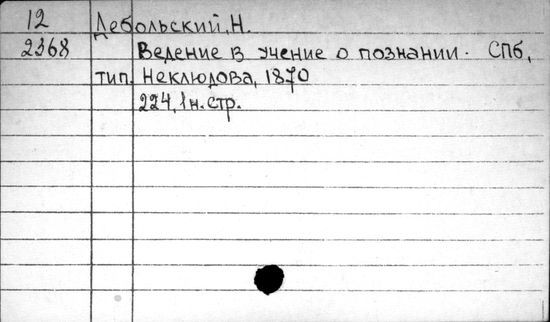 12 Дебольский, Н.
2368 Ведение в учение о познании. СПб,
тип. Неклюдова, 1870
224, 1 н. стр.